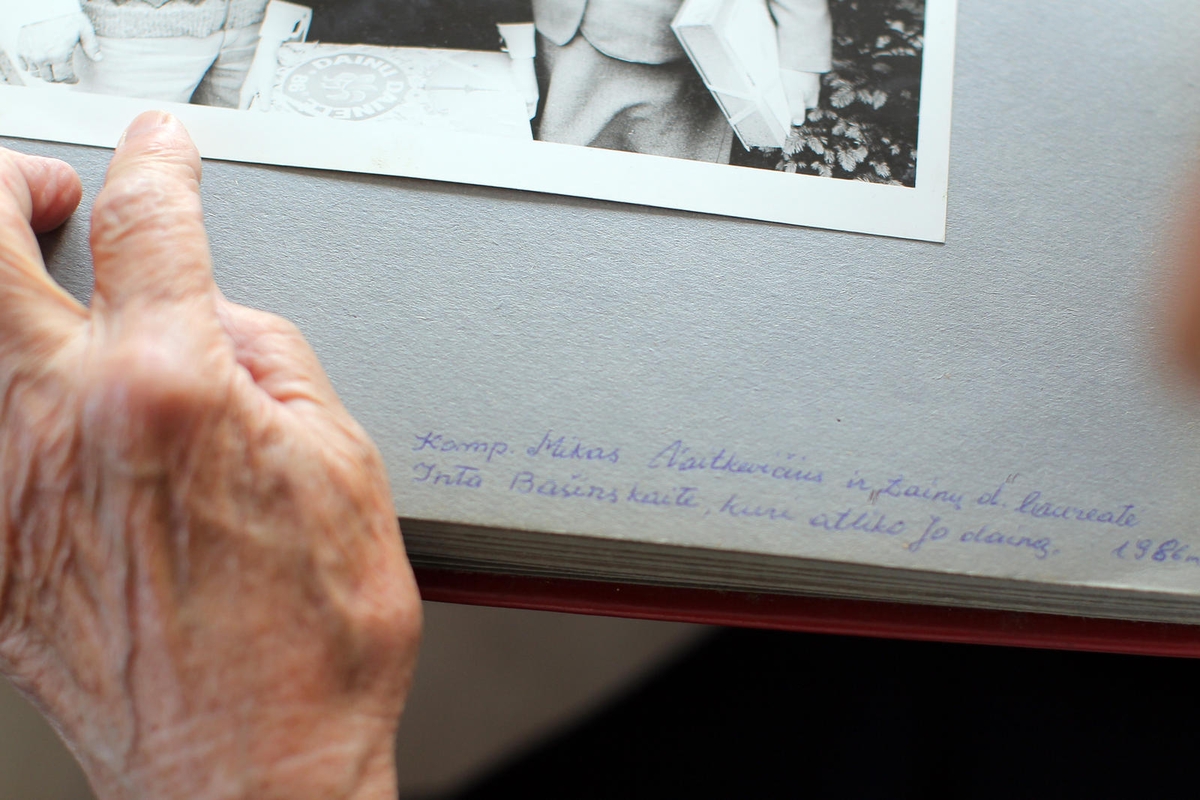 DAINŲ DAINELĖ 86
Komp. Mikas Vaitkevičius ir „Dainų d." laureatė
Inta Bašinskaitė, kuri atliko Jo dainą. 1986 m